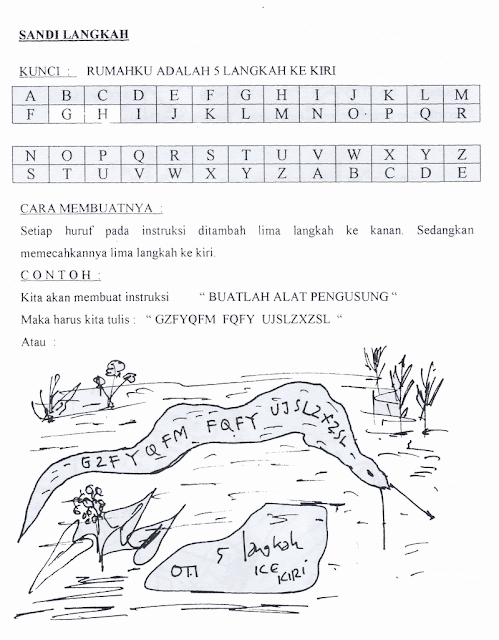 SANDI LANGKAH
KUNCI : RUMAHKU ADALAH 5 LANGKAH KE KIRI
A B C D E F G H I J K L M
F G H I J K L M N O P Q R
N O P Q R S T U V W X Y Z
S T U V W X Y Z A B C D E
CARA MEMBUATNYA :
Setiap huruf pada instruksi ditambah lima langkah ke kanan. Sedangkan
memecahkannya lima langkah ke kiri.
C O N T O H :
Kita akan membuat instruksi “ BUATLAH ALAT PENGUSUNG “
Maka harus kita tulis : “ GZFYQFM FQFY UJSLZXZSL “
Atau :
GZFYQFM FQFY UJSLZXZSL
5 langkah
KE
KIRI